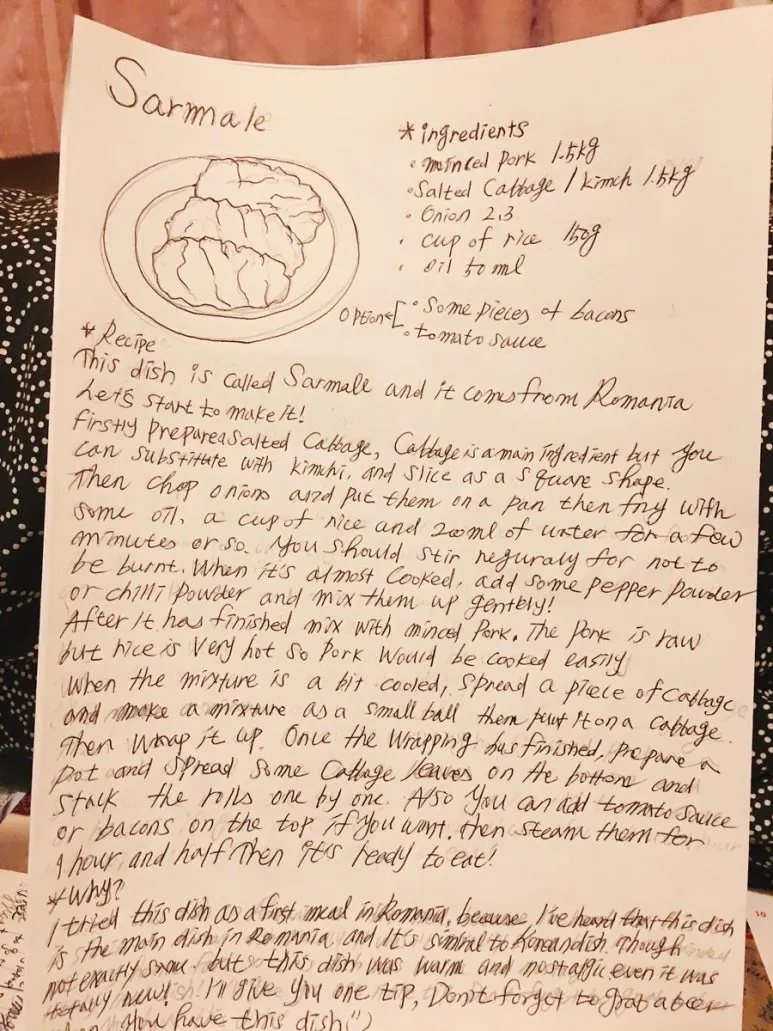 Sarmale
* ingredients
· minced pork 1.5kg
· Salted Cabbage / kimch 1.5kg
· Onion 2.3
· cup of rice 150g
· oil 50 ml
Option [ · Some pieces of bacons
· tomato sauce
* Recipe
This dish is called Sarmale and it comes from Romania
Let's start to make it!
firstly prepare a salted Cabbage, Cabbage is a main ingredient but you
can substitute with kimchi, and slice as a square shape.
Then chop onions and put them on a pan then fry with
some oil, a cup of rice and 200ml of water for a few
minutes or so. You should stir reguraly for not to
be burnt. When it's almost cooked, add some pepper powder
or chilli powder and mix them up gentbly!
After it has finished mix with minced pork. The pork is raw
but rice is very hot so pork would be cooked easily
When the mixture is a bit cooled, spread a piece of cabbage
and make a mixture as a small ball them put it on a cabbage.
Then wrap it up. Once the wrapping has finished, prepare a
pot and spread some cabbage leaves on the bottom and
stack the rolls one by one. Also you can add tomato sauce
or bacons on the top if you want, then steam them for
1 hour and half Then it's ready to eat!
* Why?
I tried this dish as a first meal in Romania, because I've heard that this dish
is the main dish in Romania and it's similar to Korean dish. Though
not exactly same but this dish was warm and nostalgic even it was
totally new! I'll give you one tip, Don't forget to grab a beer
when you have this dish :")